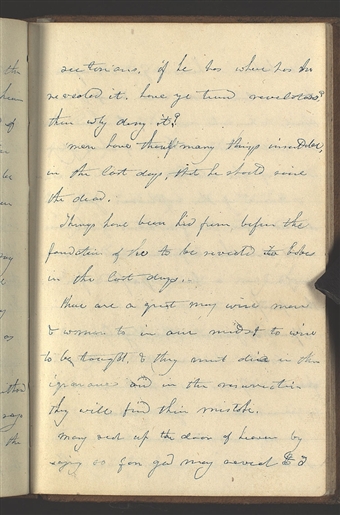 sectarians. if he has where has he
revealed it. have ye turned revelators?
then why deny it?
men have thought many things incredible,
in the last days, that he should raise
the dead.
Things have been hid from before the
foundation of the to be revealed to babes
in the last days..
There are a great many wise men
& women to in our midst to wise
to be taught. & they must die in their
ignorance and in the resurrection
they will find their mistake.
Many seal up the door of heaven by
saying so far god may reveal & I